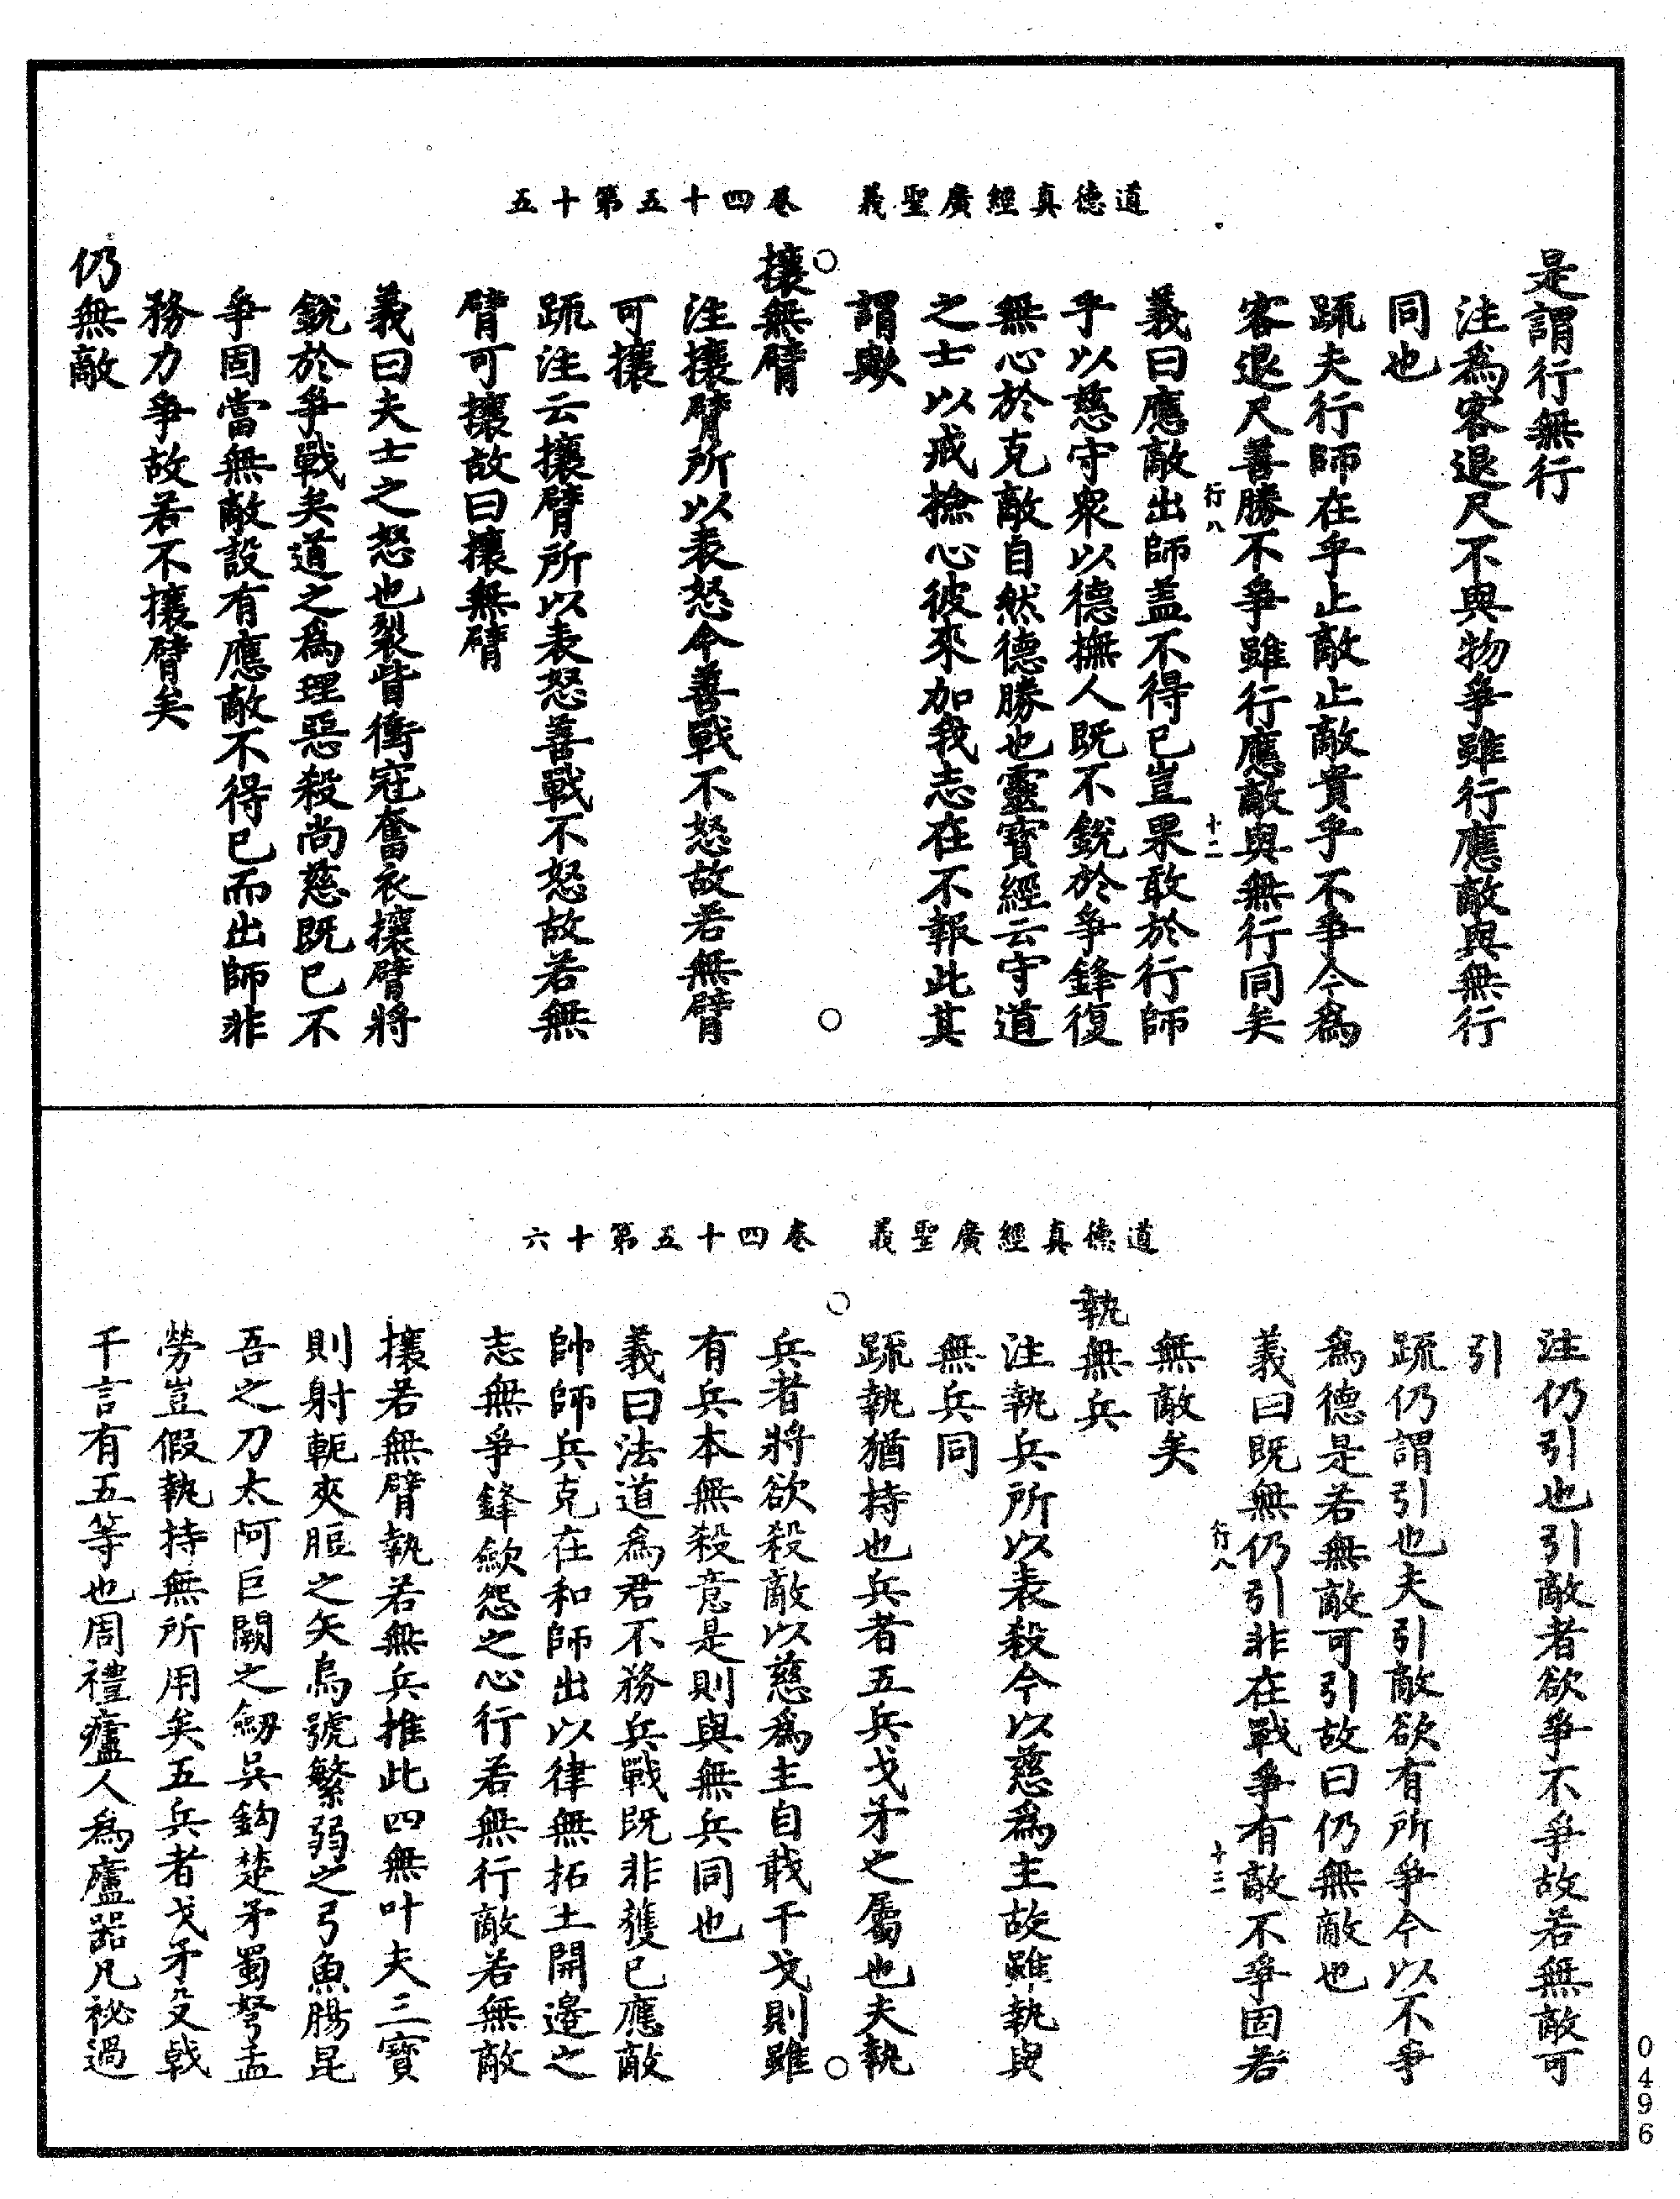 道德真經廣聖義　卷四十五第十五
是謂行無行
注為客退尺不與物爭雖行應敵與無行
同也
疏夫行師在乎止敵止敵貴乎不爭今為
客退尺善勝不爭雖行應敵與無行同矣
行八　十二
義曰應敵出師蓋不得已豈果敢於行師
乎以慈守衆以德撫人既不銳於爭鋒復
無心於克敵自然德勝也靈寶經云守道
之士以戒捡心彼來加我志在不報此其
謂歟
攘無臂
注攘臂所以表怒今善戰不怒故若無臂
可攘
疏注云攘臂所以表怒善戰不怒故若無
臂可攘故曰攘無臂
義曰夫士之怒也裂眥衝冠奮衣攘臂將
銳於爭戰矣道之為理惡殺尚慈既已不
爭固當無敵設有應敵不得已而出師非
務力爭故若不攘臂矣
仍無敵
道德真經廣聖義　卷四十五第十六
注仍引也引敵者欲爭不爭故若無敵可
引
疏仍謂引也夫引敵欲有所爭今以不爭
為德是若無敵可引故曰仍無敵也
義曰既無仍引非在戰爭有敵不爭固若
行八　十三
無敵矣
執無兵
注執兵所以表殺今以慈為主故雖執與
無兵同
疏執猶持也兵者五兵戈矛之屬也夫執
兵者將欲殺敵以慈為主自戢干戈則雖
有兵本無殺意是則與無兵同也
義曰法道為君不務兵戰既非獲已應敵
帥師兵克在和師出以律無拓土開邊之
志無爭鋒歛怨之心行若無行敵若無敵
攘若無臂執若無兵推此四無叶夫三寶
則射軛夾脰之矢烏號繁弱之弓魚腸昆
吾之刀太阿巨闕之劒吳鈎楚矛蜀弩孟
勞豈假執持無所用矣五兵者戈矛殳戟
干言有五等也周禮廬人為廬器凡祕過
0496